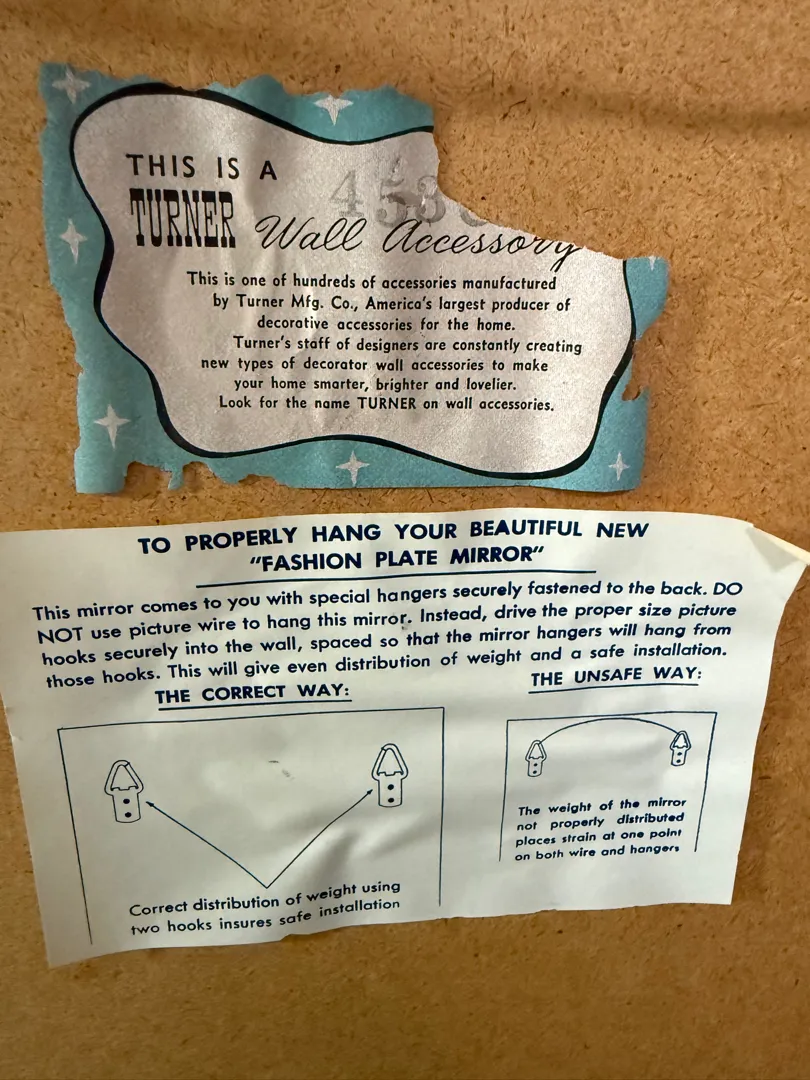 THIS IS A
453
TURNER Wall Accessory
This is one of hundreds of accessories manufactured
by Turner Mfg. Co., America's largest producer of
decorative accessories for the home.
Turner's staff of designers are constantly creating
new types of decorator wall accessories to make
your home smarter, brighter and lovelier.
Look for the name TURNER on wall accessories.
TO PROPERLY HANG YOUR BEAUTIFUL NEW
"FASHION PLATE MIRROR"
This mirror comes to you with special hangers securely fastened to the back. DO
NOT use picture wire to hang this mirror. Instead, drive the proper size picture
hooks securely into the wall, spaced so that the mirror hangers will hang from
those hooks. This will give even distribution of weight and a safe installation.
THE CORRECT WAY:
Correct distribution of weight using
two hooks insures safe installation
THE UNSAFE WAY:
The weight of the mirror
not properly distributed
places strain at one point
on both wire and hangers